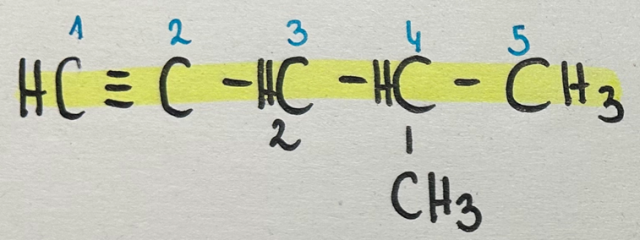 1 2 3 4 5
HC ≡ C - HC - HC - CH3
2 |
CH3